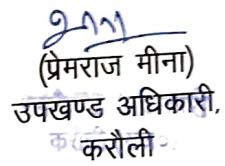 (प्रेमराज मीना)
उपखण्ड अधिकारी,
करौली